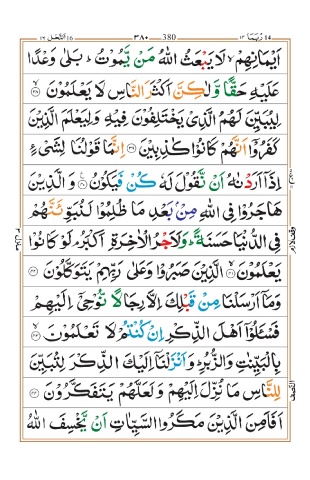 النحل ١٦ 16 ٣٨٠ 380 ربما ١٤ 14
اَيْمَانِهِمْ ۙ لَا يَبْعَثُ اللّٰهُ مَنْ يَّمُوْتُ ؕ بَلٰى وَعْدًا
عَلَيْهِ حَقًّا وَّلٰكِنَّ اَكْثَرَ النَّاسِ لَا يَعْلَمُوْنَ ۙ﴿۳۸﴾
لِيُبَيِّنَ لَهُمُ الَّذِيْ يَخْتَلِفُوْنَ فِيْهِ وَلِيَعْلَمَ الَّذِيْنَ
كَفَرُوْۤا اَنَّهُمْ كَانُوْا كٰذِبِيْنَ ﴿۳۹﴾ اِنَّمَا قَوْلُنَا لِشَيْءٍ
اِذَاۤ اَرَدْنٰهُ اَنْ نَّقُوْلَ لَهٗ كُنْ فَيَكُوْنُ ﴿۴۰﴾ وَالَّذِيْنَ
هَاجَرُوْا فِي اللّٰهِ مِنْۢ بَعْدِ مَا ظُلِمُوْا لَنُبَوِّئَنَّهُمْ
فِي الدُّنْيَا حَسَنَةً ؕ وَلَاَجْرُ الْاٰخِرَةِ اَكْبَرُ ۘ لَوْ كَانُوْا
يَعْلَمُوْنَ ۙ﴿۴۱﴾ الَّذِيْنَ صَبَرُوْا وَعَلٰى رَبِّهِمْ يَتَوَكَّلُوْنَ ﴿۴۲﴾
وَمَاۤ اَرْسَلْنَا مِنْ قَبْلِكَ اِلَّا رِجَالًا نُّوْحِيْۤ اِلَيْهِمْ
فَسْـَٔلُوْۤا اَهْلَ الذِّكْرِ اِنْ كُنْتُمْ لَا تَعْلَمُوْنَ ۙ﴿۴۳﴾
بِالْبَيِّنٰتِ وَالزُّبُرِ ؕ وَاَنْزَلْنَاۤ اِلَيْكَ الذِّكْرَ لِتُبَيِّنَ
لِلنَّاسِ مَا نُزِّلَ اِلَيْهِمْ وَلَعَلَّهُمْ يَتَفَكَّرُوْنَ ﴿۴۴﴾
اَفَاَمِنَ الَّذِيْنَ مَكَرُوا السَّيِّاٰتِ اَنْ يَّخْسِفَ اللّٰهُ